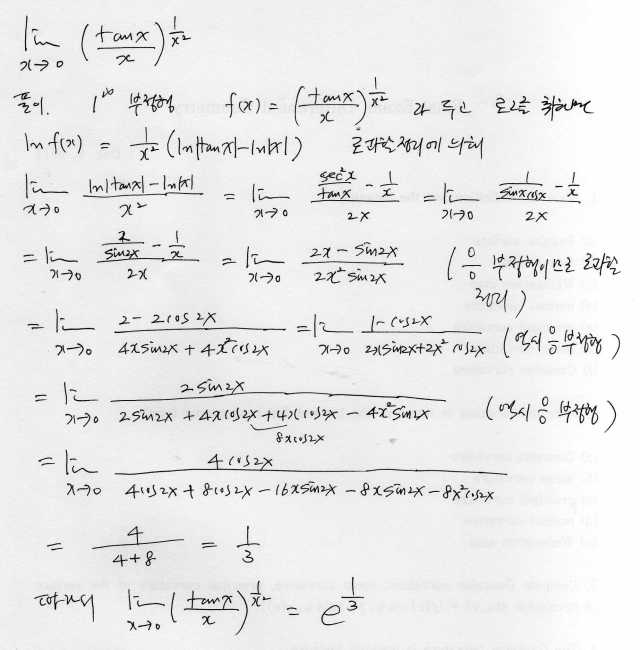 lim_{x→0} (tanx/x)^{1/x²}
풀이. 1^∞ 부정형 f(x) = (tanx/x)^{1/x²} 라 두고 로그를 취하면
ln f(x) = 1/x² (ln|tanx|-ln|x|) 로피탈정리에 의해
lim_{x→0} (ln|tanx|-ln|x|)/x² = lim_{x→0} (sec²x/tanx - 1/x)/2x = lim_{x→0} (1/(sinxcosx) - 1/x)/2x
= lim_{x→0} (2/sin2x - 1/x)/2x = lim_{x→0} (2x - sin2x)/(2x² sin2x) (0/0 부정형이므로 로피탈
정리)
= lim_{x→0} (2-2cos2x)/(4xsin2x + 4x²cos2x) = lim_{x→0} (1-cos2x)/(2xsin2x+2x²cos2x) (역시 0/0 부정형)
= lim_{x→0} (2sin2x)/(2sin2x + 4xcos2x + 4xcos2x - 4x²sin2x) (역시 0/0 부정형)
8xcos2x
= lim_{x→0} (4cos2x)/(4cos2x + 8cos2x - 16xsin2x - 8xsin2x - 8x²cos2x)
= 4/(4+8) = 1/3
따라서 lim_{x→0} (tanx/x)^{1/x²} = e^{1/3}